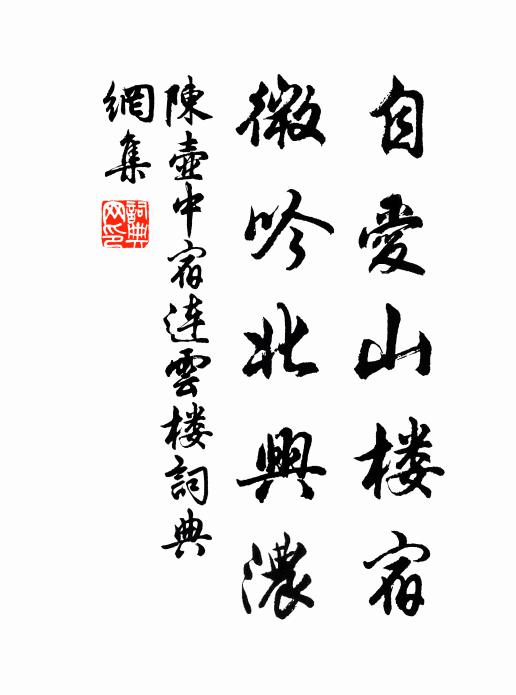 自愛山楼宿
微吟北興濃
陳壺中宿連雲楼詞典
網集
詞典
网印